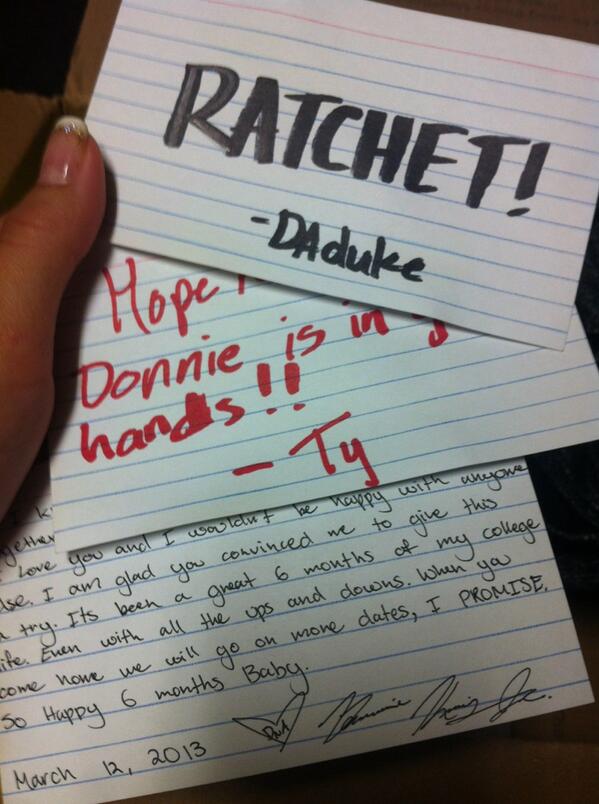 RATCHET!
-DAduke
Hope
Donnie is in
hands!!
- Ty
love you and I wouldn't be happy with anyone
else. I am glad you convinced me to give this
a try. Its been a great 6 months of my college
life. Even with all the ups and downs. When you
come home we will go on more dates, I PROMISE.
So Happy 6 months Baby.
March 12, 2013